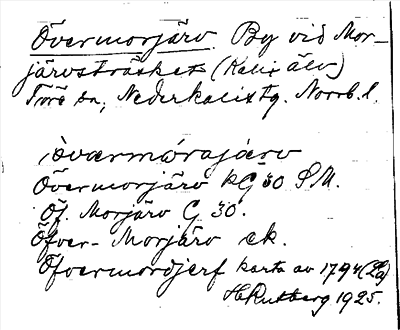 Övermorjärv. By vid Mor-
järvsträsket (Kalix älv)
Töre sn, Nederkalix tg. Norrb. l.
Övermorjärv kG 30 SM.
Öf. Morjärv G 30.
Öfver-Morjärv ek.
Öfvermordjerf karta av 1794 (La)
H Rutberg 1925.